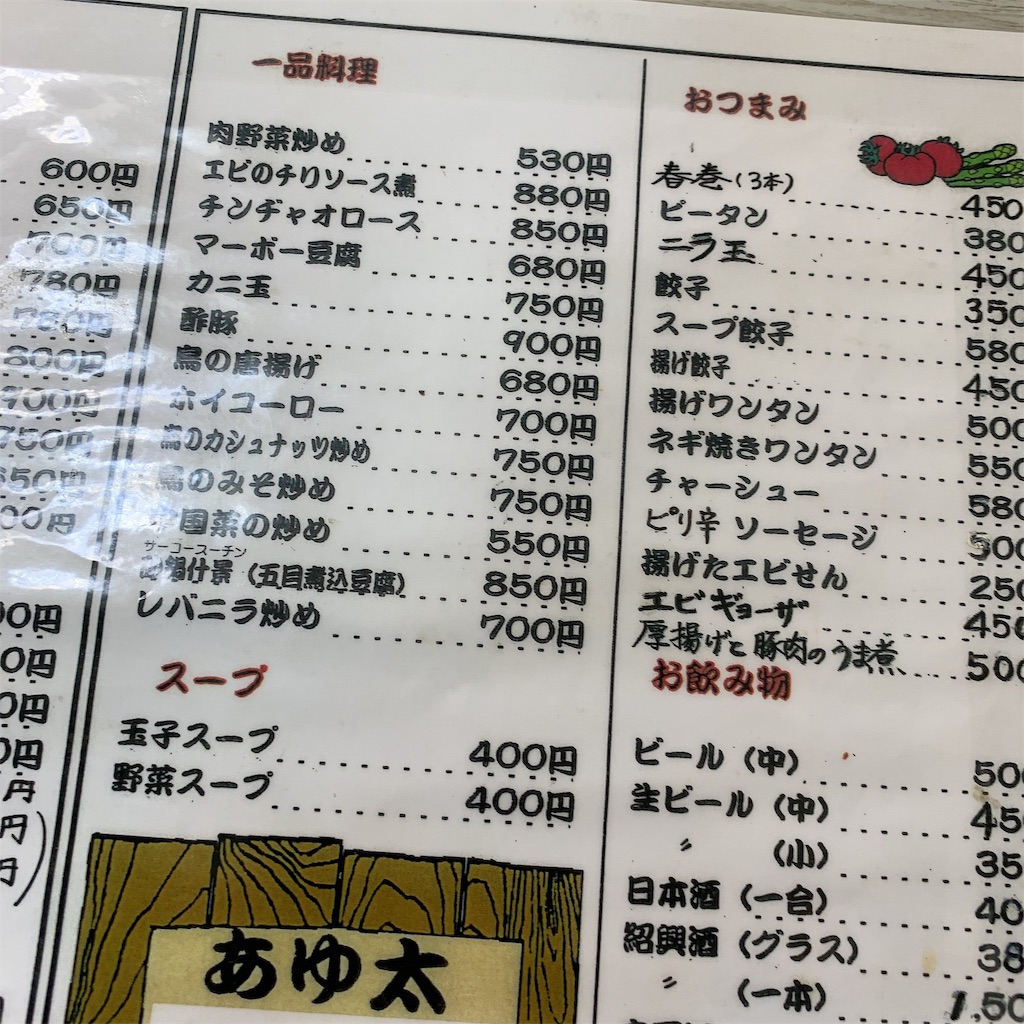 600円
650円
700円
780円
800円
900円
750円
650円
00円
00円
0円
0円
0円
円
円
円)
一品料理
肉野菜炒め 530円
エビのチリソース煮 880円
チンヂャオロース 850円
マーボー豆腐 680円
カニ玉 750円
酢豚 900円
鳥の唐揚げ 680円
ホイコーロー 700円
鳥のカシュナッツ炒め 750円
鳥のみそ炒め 750円
中国菜の炒め 550円
サーコースーチン
什景（五目煮込豆腐） 850円
レバニラ炒め 700円
スープ
玉子スープ 400円
野菜スープ 400円
あゆ太
おつまみ
春巻（3本） 450
ピータン 380
ニラ玉 450
餃子 350
スープ餃子 580
揚げ餃子 450
揚げワンタン 500
ネギ焼きワンタン 550
チャーシュー 580
ピリ辛 ソーセージ 500
揚げたエビせん 250
エビギョーザ 450
厚揚げと豚肉のうま煮 500
お飲み物
ビール（中） 500
生ビール（中） 45
〃 （小） 35
日本酒（一台） 40
紹興酒（グラス） 38
〃 （一本） 1,50